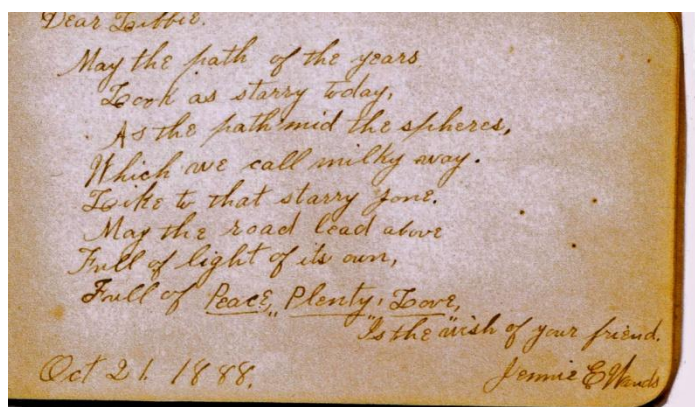 Dear Libbie.
May the path of the years
Look as starry today,
As the path mid the spheres,
Which we call milky way.
Like to that starry zone.
May the road lead above
Full of light of its own,
Full of Peace, Plenty, Love,
"Is the wish" of your friend.
Oct 21. 1888. Jennie E